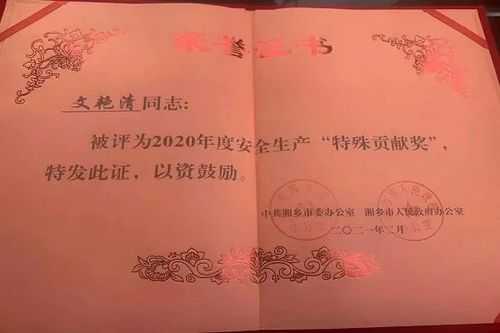 荣誉证书
文艳清同志:
被评为2020年度安全生产“特殊贡献奖”,
特发此证,以资鼓励。
中共湘乡市委办公室 湘乡市人民政府办公室
二〇二一年二月